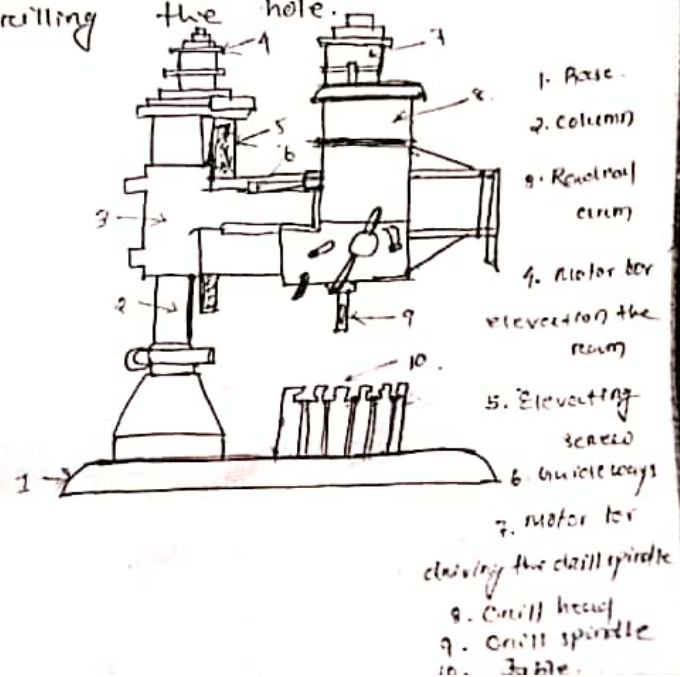 the hole.
4
7
8
5
6
3
2
9
10
1
1. Base.
2. Column
3. Readraul
arum
4. Motor bor
elevation the
raum
5. Elevating
screw
6. Guideways
7. Motor for
driving the drill spindle
8. Drill head
9. Drill spindle
10. Table.